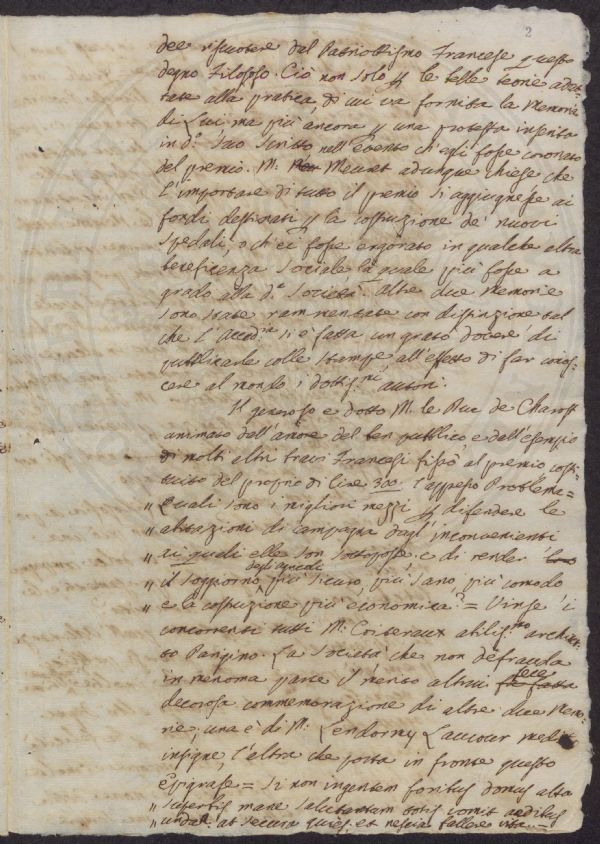 2
dee riscuotere dal Patriottismo Francese questo
degno Filosofo. Ciò non solo p le belle teorie adat-
tate alla pratica, di cui va fornita la Memoria
di Lui, ma più ancora p una protesta inserita
in do. suo scritto nell'evento ch'egli fosse coronato
del premio. M. Meuret adunque chiese che
l'importare di tutto il premio si aggiugnesse ai
fondi destinati p la costruzione de' nuovi
spedali, o ch'ei fosse erogato in qualche altra
beneficenza sociale la quale più fosse a
grado alla da. società. Altre due Memorie
sono state rammentate con distinzione tal
che l'Accad.a si è fatta un grato dovere di
pubblicarle colle stampe all'effetto di far conos-
cere al mondo i dottissni. autori.
Il generoso e dotto M. le Duc de Charost
animato dall'amore del ben pubblico, e dall'esempio
di molti altri bravi Francesi fissò al premio costi-
tuito del proprio di Lire 300. l'appresso Problema =
" Quali sono i migliori mezzi p difendere le
" abitazioni di campagna dagl'inconvenienti
" ai quali elle son sottoposte, e di render
degli agricoli
" il soggiorno più sicuro, più sano, più comodo
" e la costruzione più economica? = Vinse i
concorrenti tutti M. Cointeraux abiliss.mo archit-
to Parigino. La società che non defrauda
in menoma parte il merito altrui fece
decorosa commemorazione di altre due Memo-
rie, una è di M. Lendormy Laucour medico
insigne, l'altra che porta in fronte questo
Epigrafe = Si non ingentem foribus domus alta
" superbis mane salutantum totis vomit aedibus
" undam. at secura quies, et nescia fallere vita. =